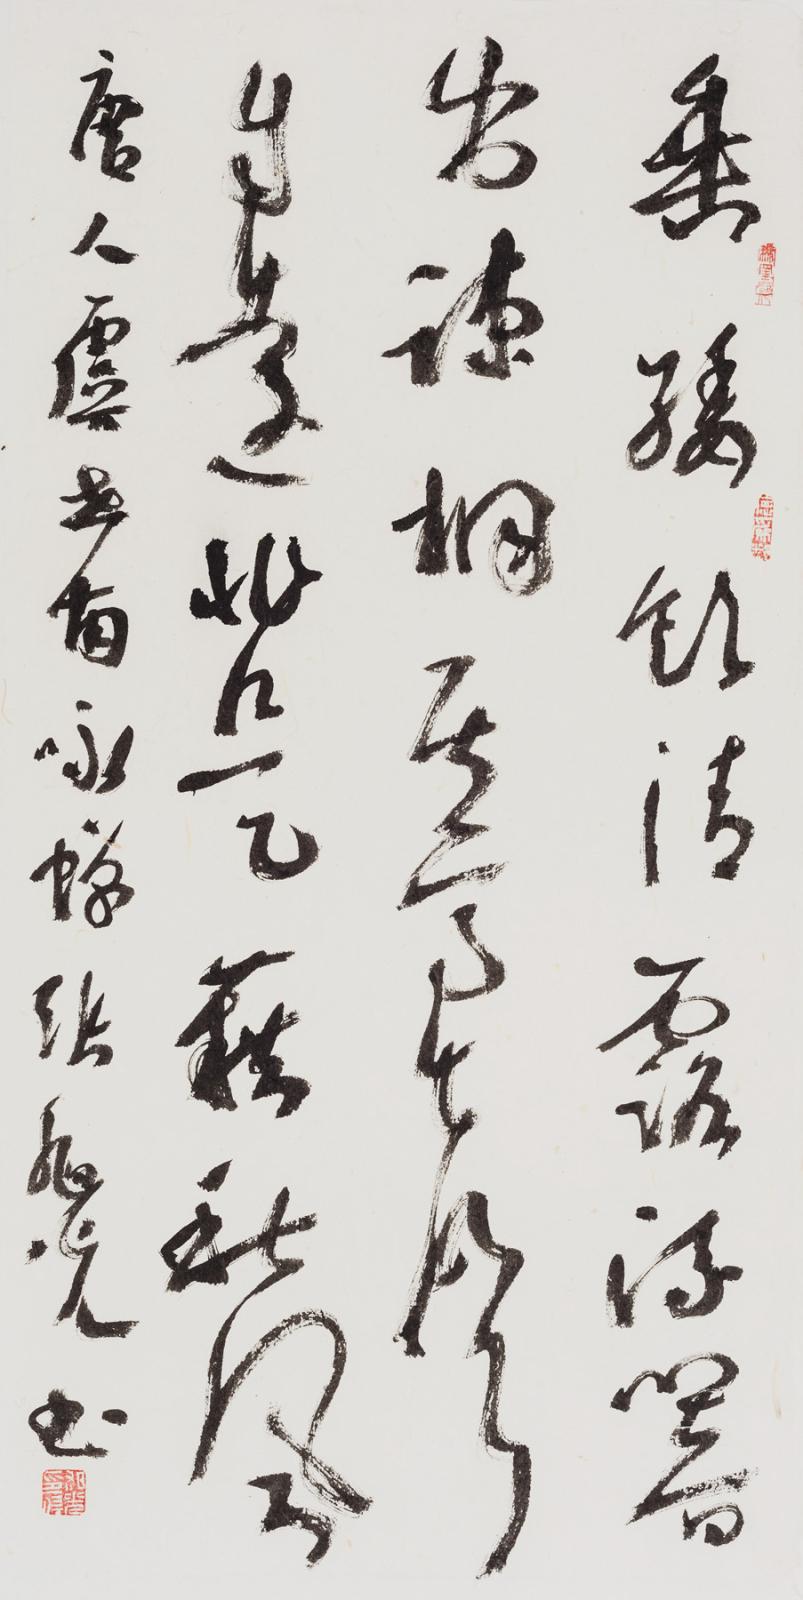 垂緌飲清露流響
出疎桐居高聲
自遠非是藉秋風
唐人虞世南咏蟬張旭光书